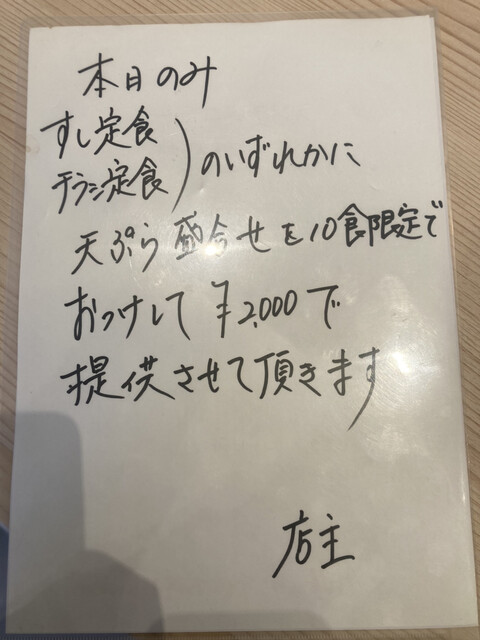 本日のみ
すし定食
チラシ定食
)のいずれかに
天ぷら盛合せを10食限定で
おつけして¥2,000で
提供させて頂きます
店主